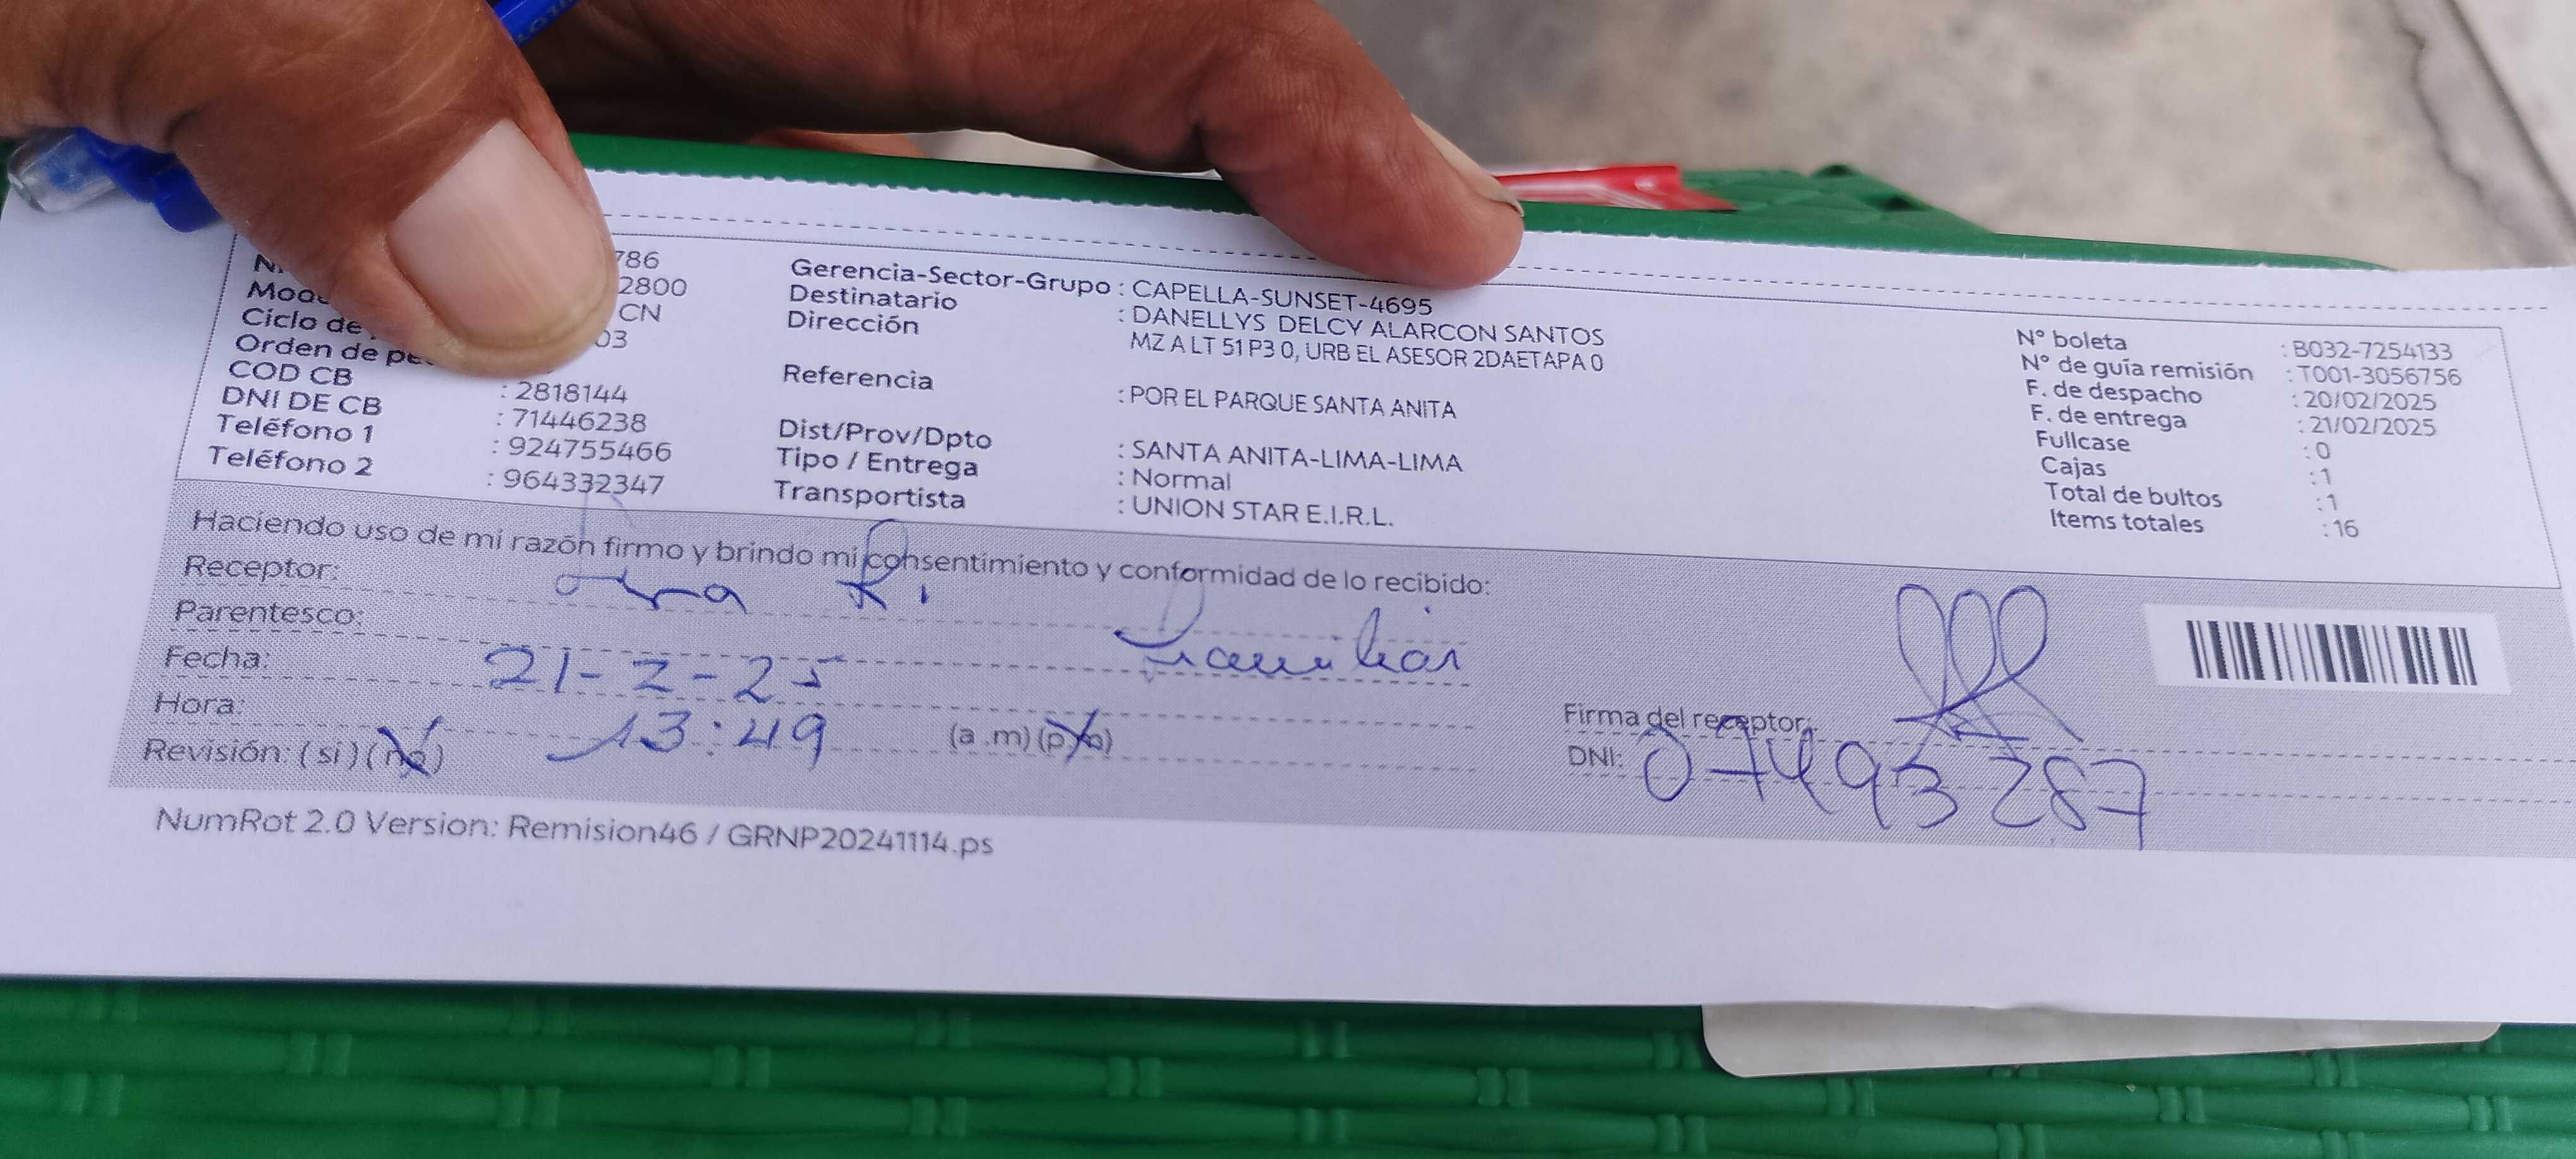 786
2800
Ciclo de CN
Orden de 03
COD CB
DNI DE CB : 2818144
Teléfono 1 : 71446238
Teléfono 2 : 924755466
: 964332347
Gerencia-Sector-Grupo : CAPELLA-SUNSET-4695
Destinatario : DANELLYS DELCY ALARCON SANTOS
Dirección MZ A LT 51 P3 0, URB EL ASESOR 2DAETAPA 0
Referencia : POR EL PARQUE SANTA ANITA
Dist/Prov/Dpto : SANTA ANITA-LIMA-LIMA
Tipo / Entrega : Normal
Transportista : UNION STAR E.I.R.L.
N° boleta : B032-7254133
N° de guía remisión : T001-3056756
F. de despacho : 20/02/2025
F. de entrega : 21/02/2025
Fullcase : 0
Cajas : 1
Total de bultos : 1
Items totales : 16
Haciendo uso de mi razón firmo y brindo mi consentimiento y conformidad de lo recibido:
Receptor: Ana R.
Parentesco: Familiar
Fecha: 21-2-25
Hora: 13:49 (a.m) (p.m)
Revisión: (si) (no)
Firma del receptor:
DNI: 07493287
NumRot 2.0 Version: Remision46 / GRNP20241114.ps